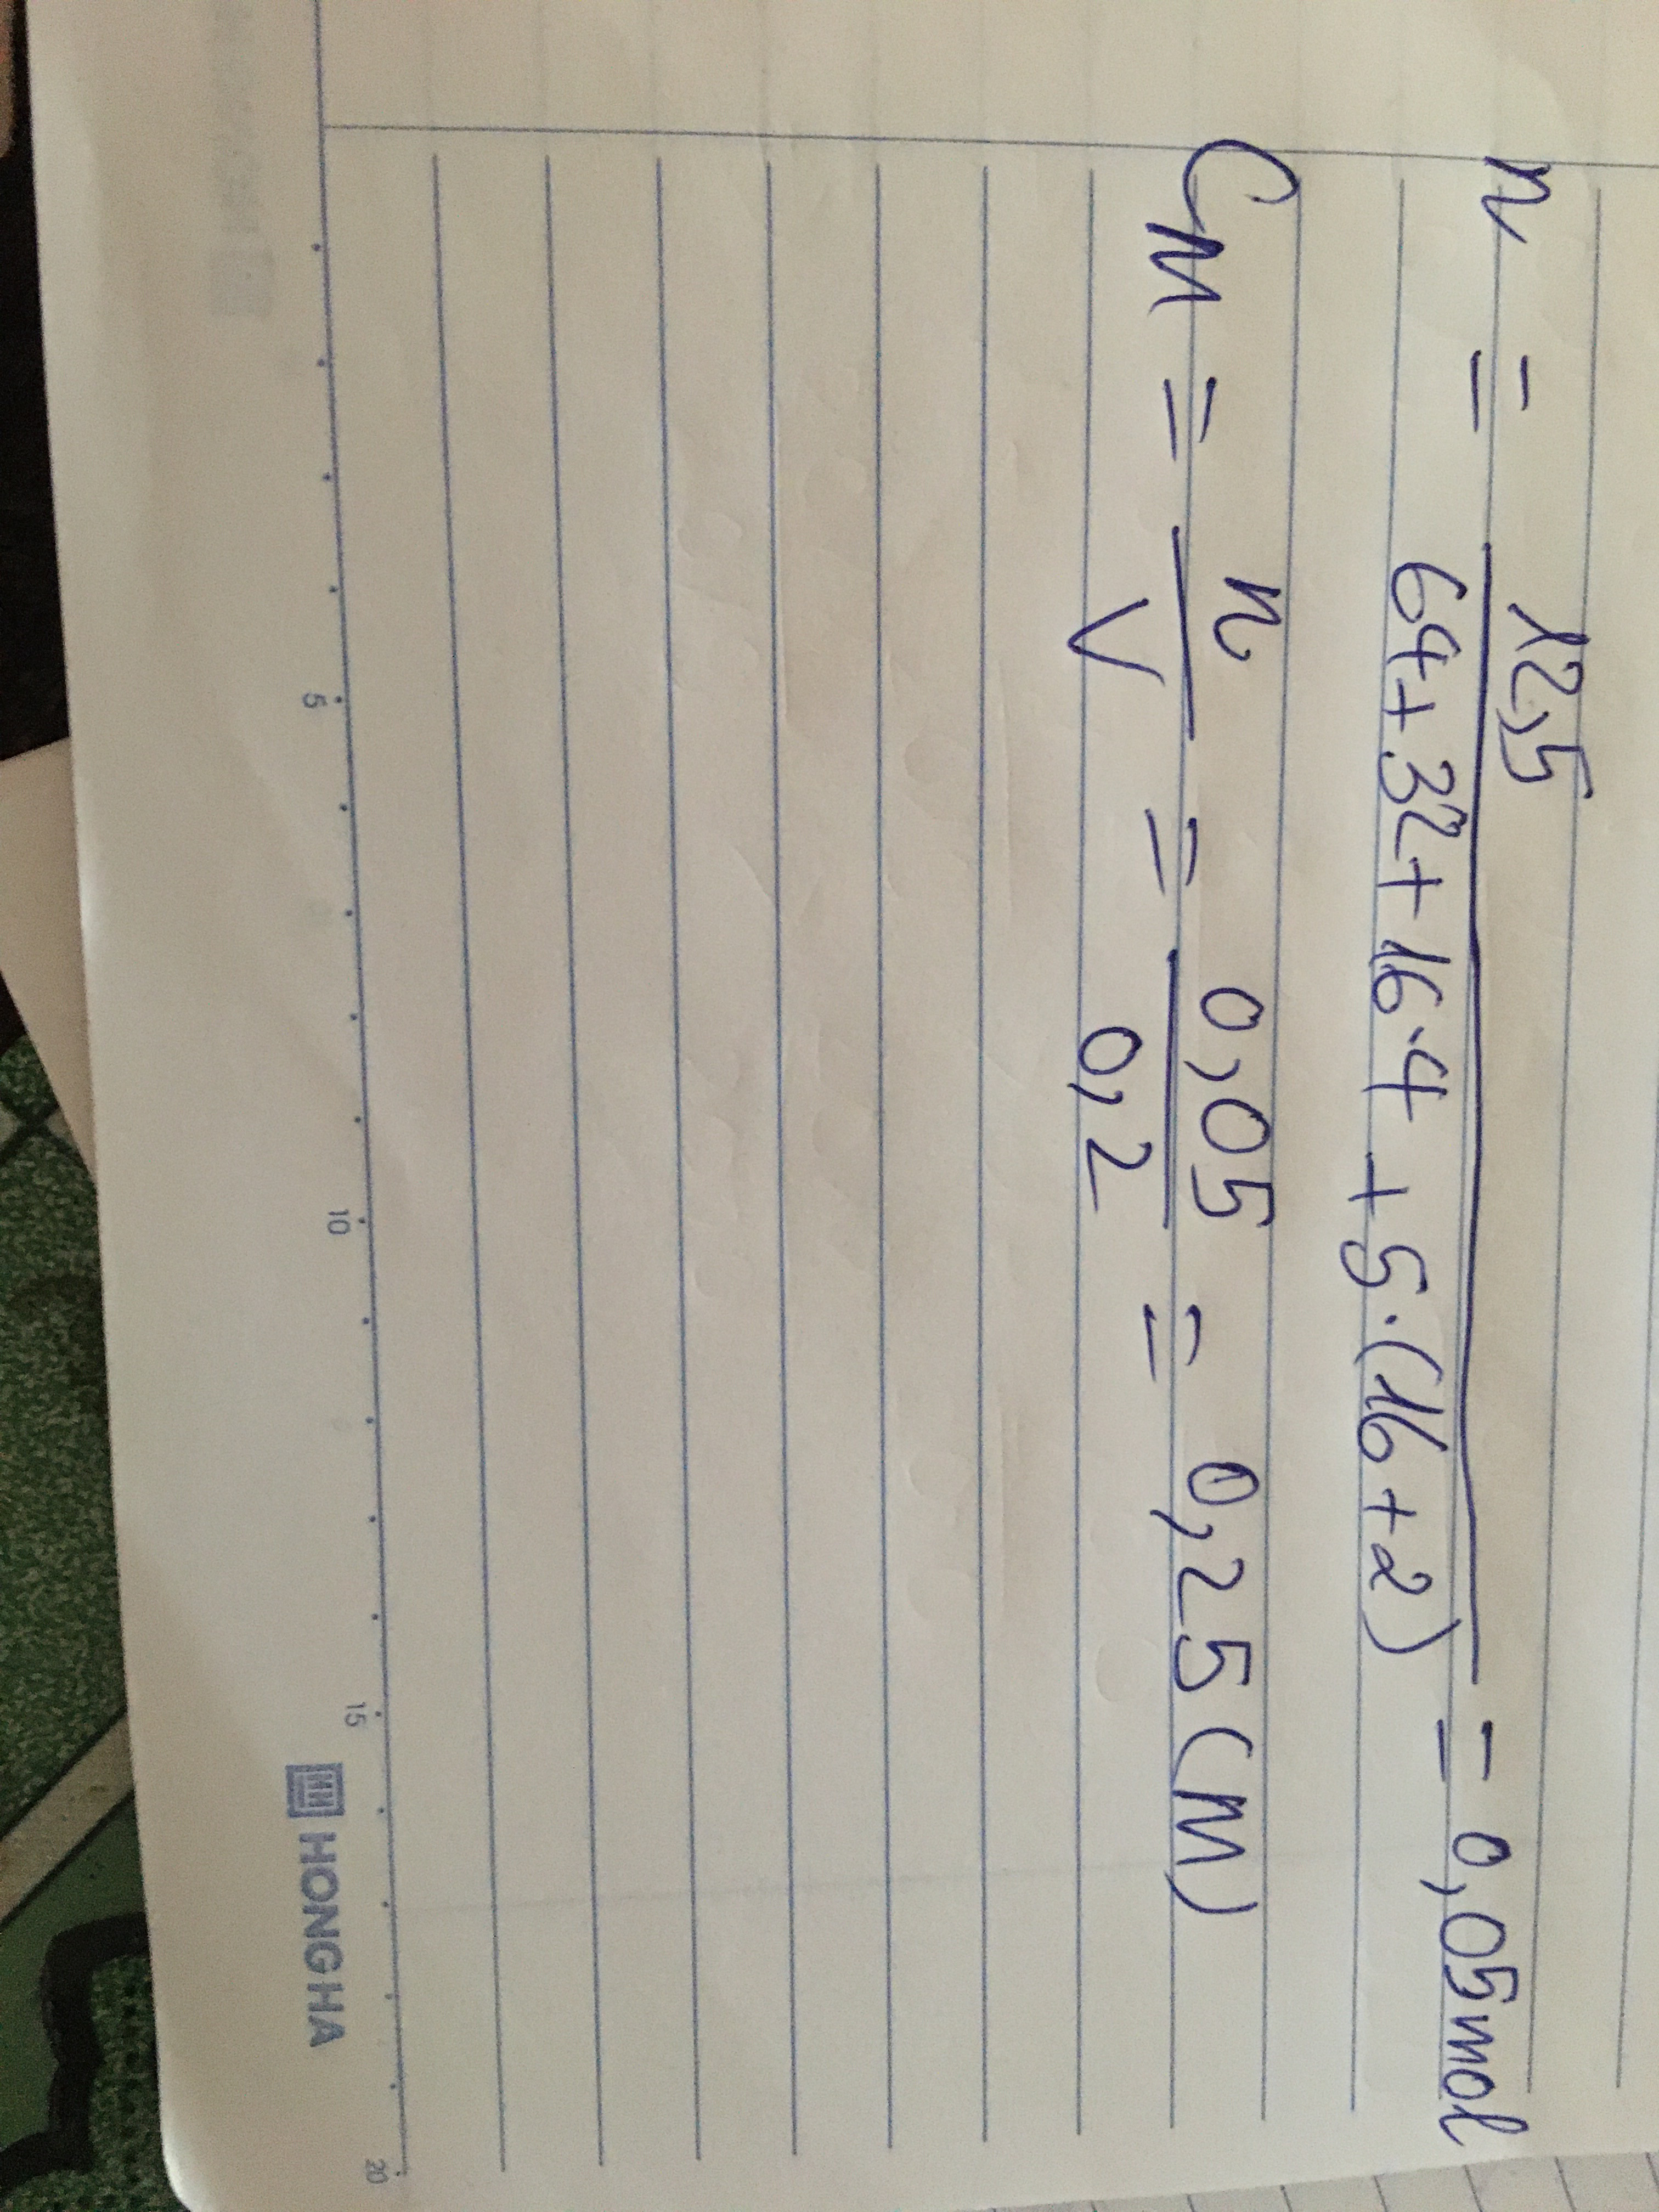 n = 12,5 / 64+32+16.4+5.(16+2) = 0,05mol
CM = n / V = 0,05 / 0,2 = 0,25(M)
5 10 15 20
HONGHA